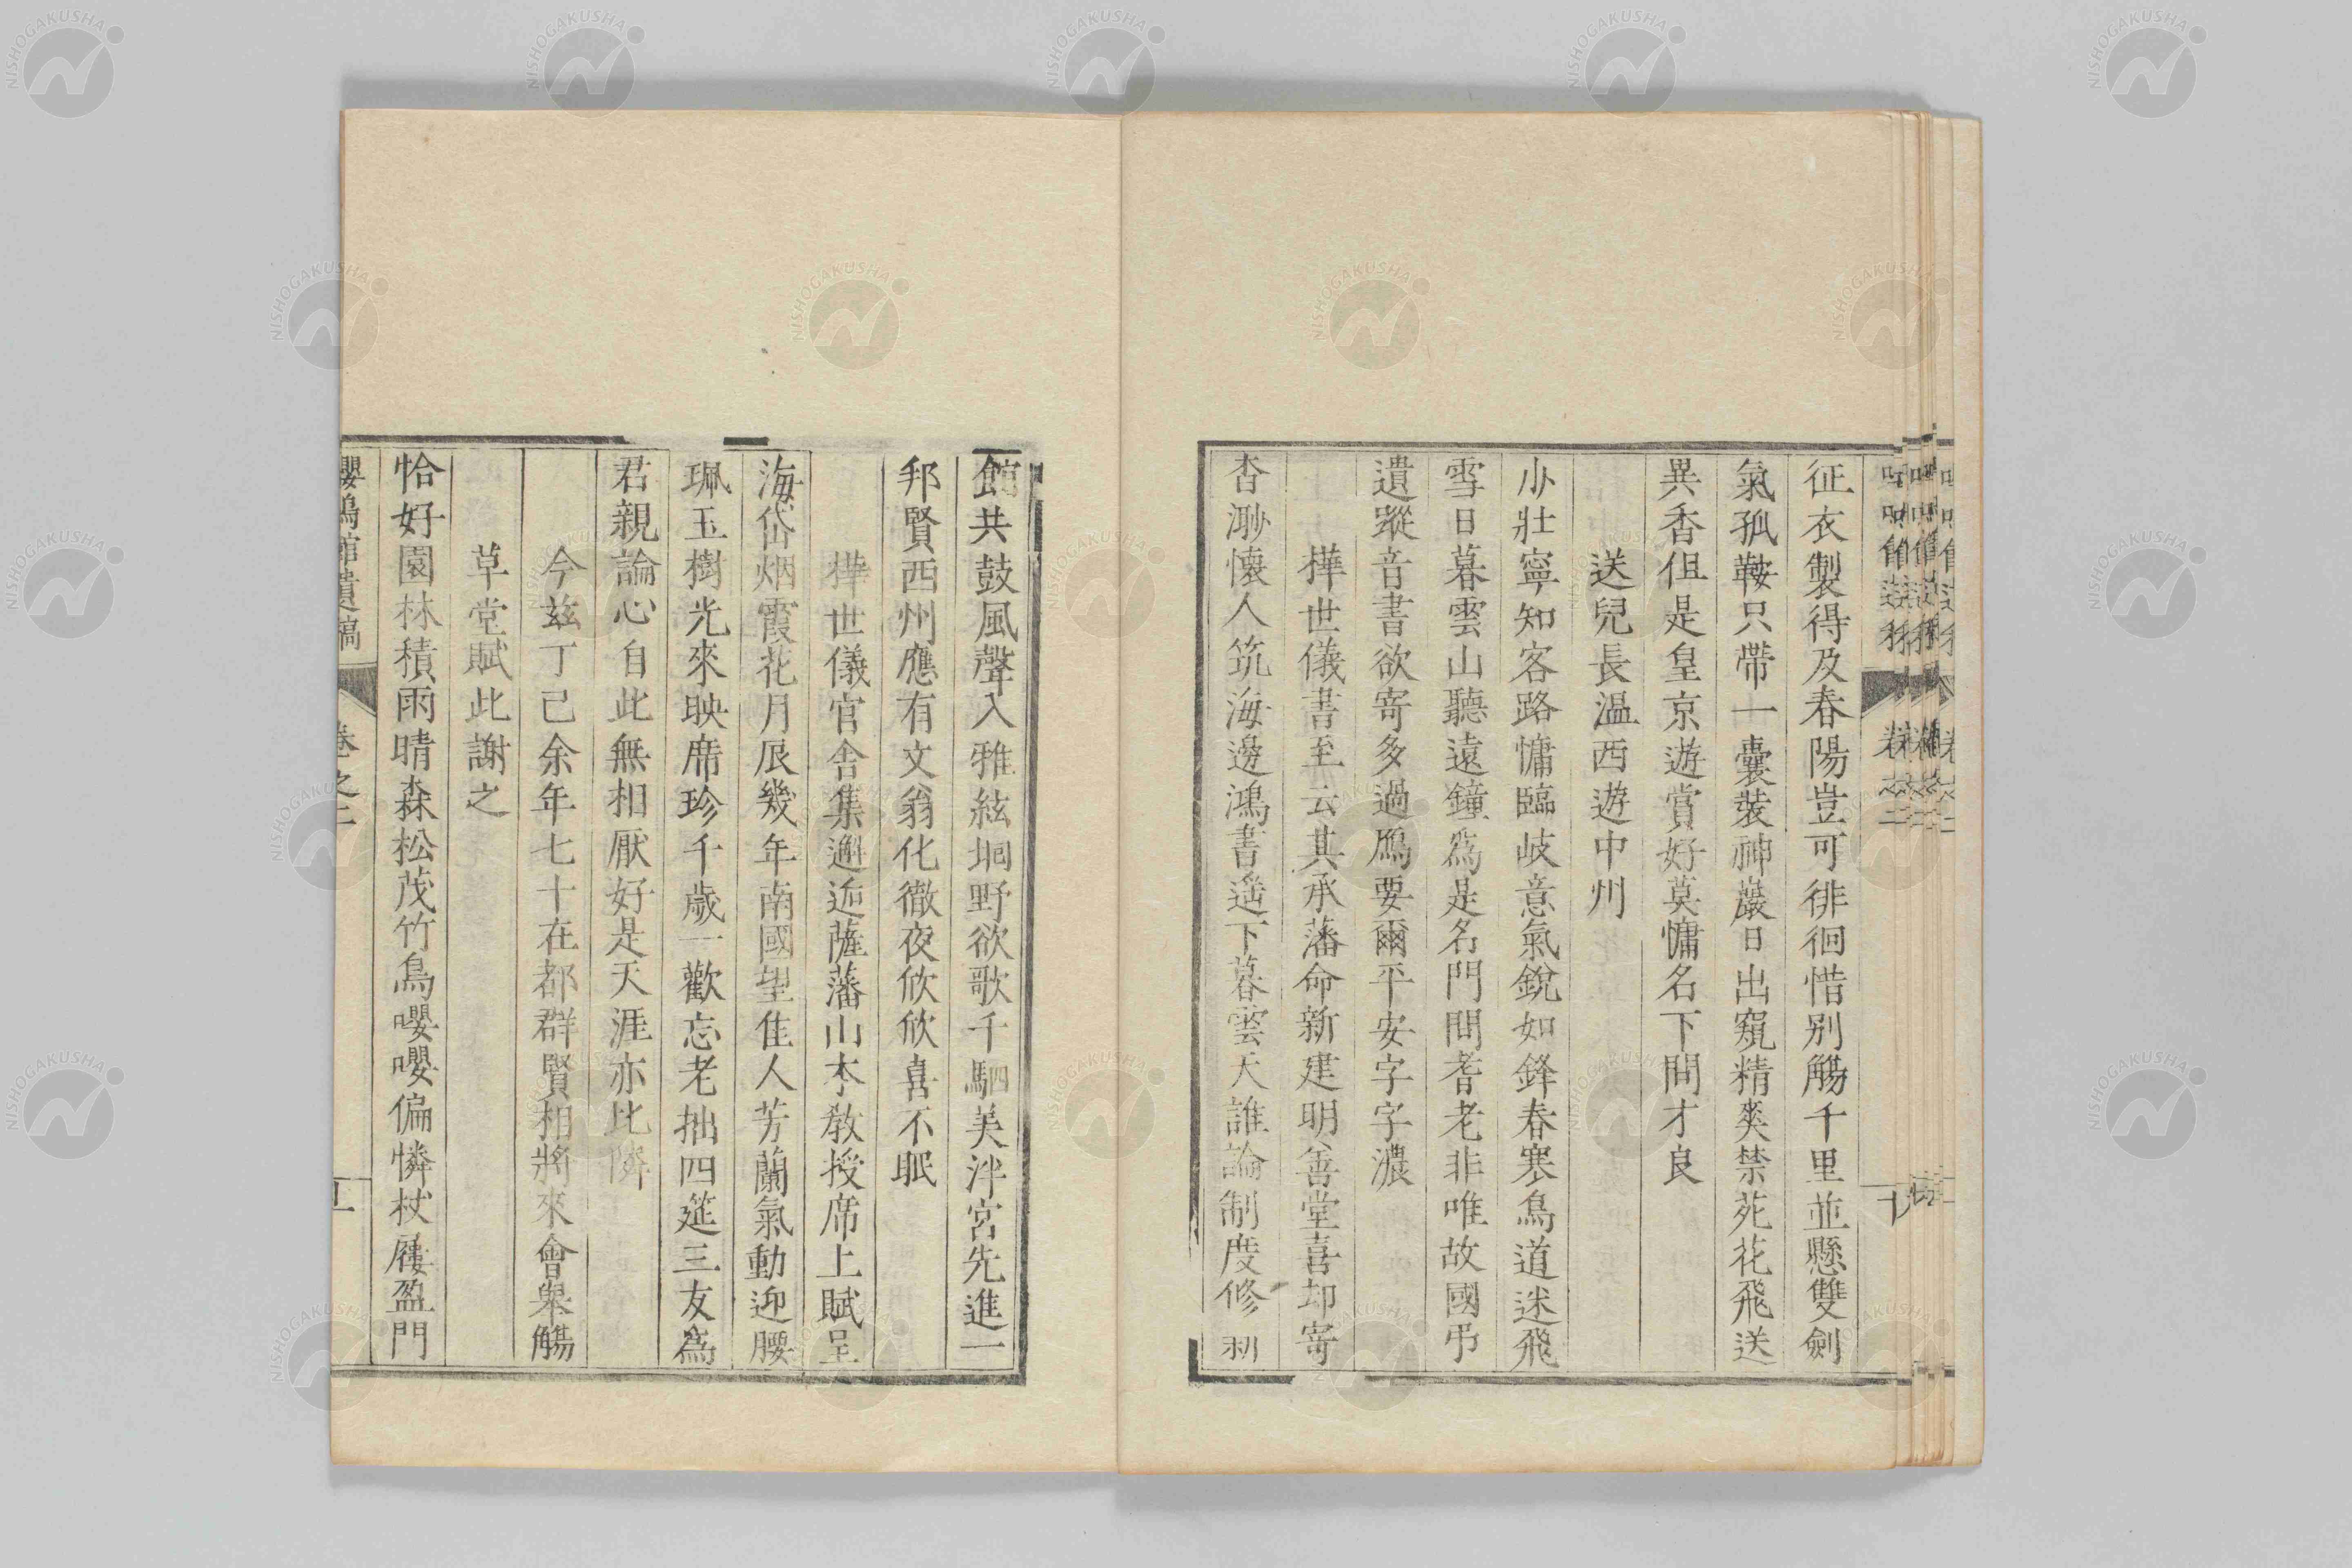 征衣製得及春陽豈可徘徊惜別觴千里並懸雙劍
氣孤鞍只帶一囊裝神巖日出窺精爽禁苑花飛送
異香但是皇京遊賞好莫慵名下問才良
送兒長温西遊中州
小壯寧知客路慵臨岐意氣銳如鋒春寒鳥道迷飛
雪日暮雲山聽遠鐘爲是名門問耆老非唯故國弔
遺蹤音書欲寄多過鴈要爾平安字字濃
樺世儀書至云其承藩命新建明善堂喜却寄
杳渺懷人筑海邊鴻書遥下暮雲天誰論制度修
館共鼓風聲入雅絃坰野欲歌千駟美泮宮先進一
邦賢西州應有文翁化徹夜欣欣喜不眠
樺世儀官舍集邂逅薩藩山本敎授席上賦呈
海岱烟霞花月辰幾年南國望佳人芳蘭氣動迎腰
珮玉樹光來映席珍千歲一歡忘老拙四筵三友爲
君親論心自此無相厭好是天涯亦比隣
今茲丁巳余年七十在都群賢相將來會舉觴
草堂賦此謝之
恰好園林積雨晴森松茂竹鳥嚶嚶偏憐杖屨盈門
嚶鳴館遺稿
卷之二
NISHOGAKUSHA